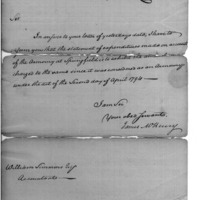 Sir
In answer to your letter of yesterdays date, I have to
inform you that the statement of expenditures made on account
of the Armory at Springfield is to include the amount
charged to the same since it was considered as an Armory
under the act of the second day of April 1794
I am Sir
Your Obd Servant
James McHenry
William Simmons Esq
Accountant